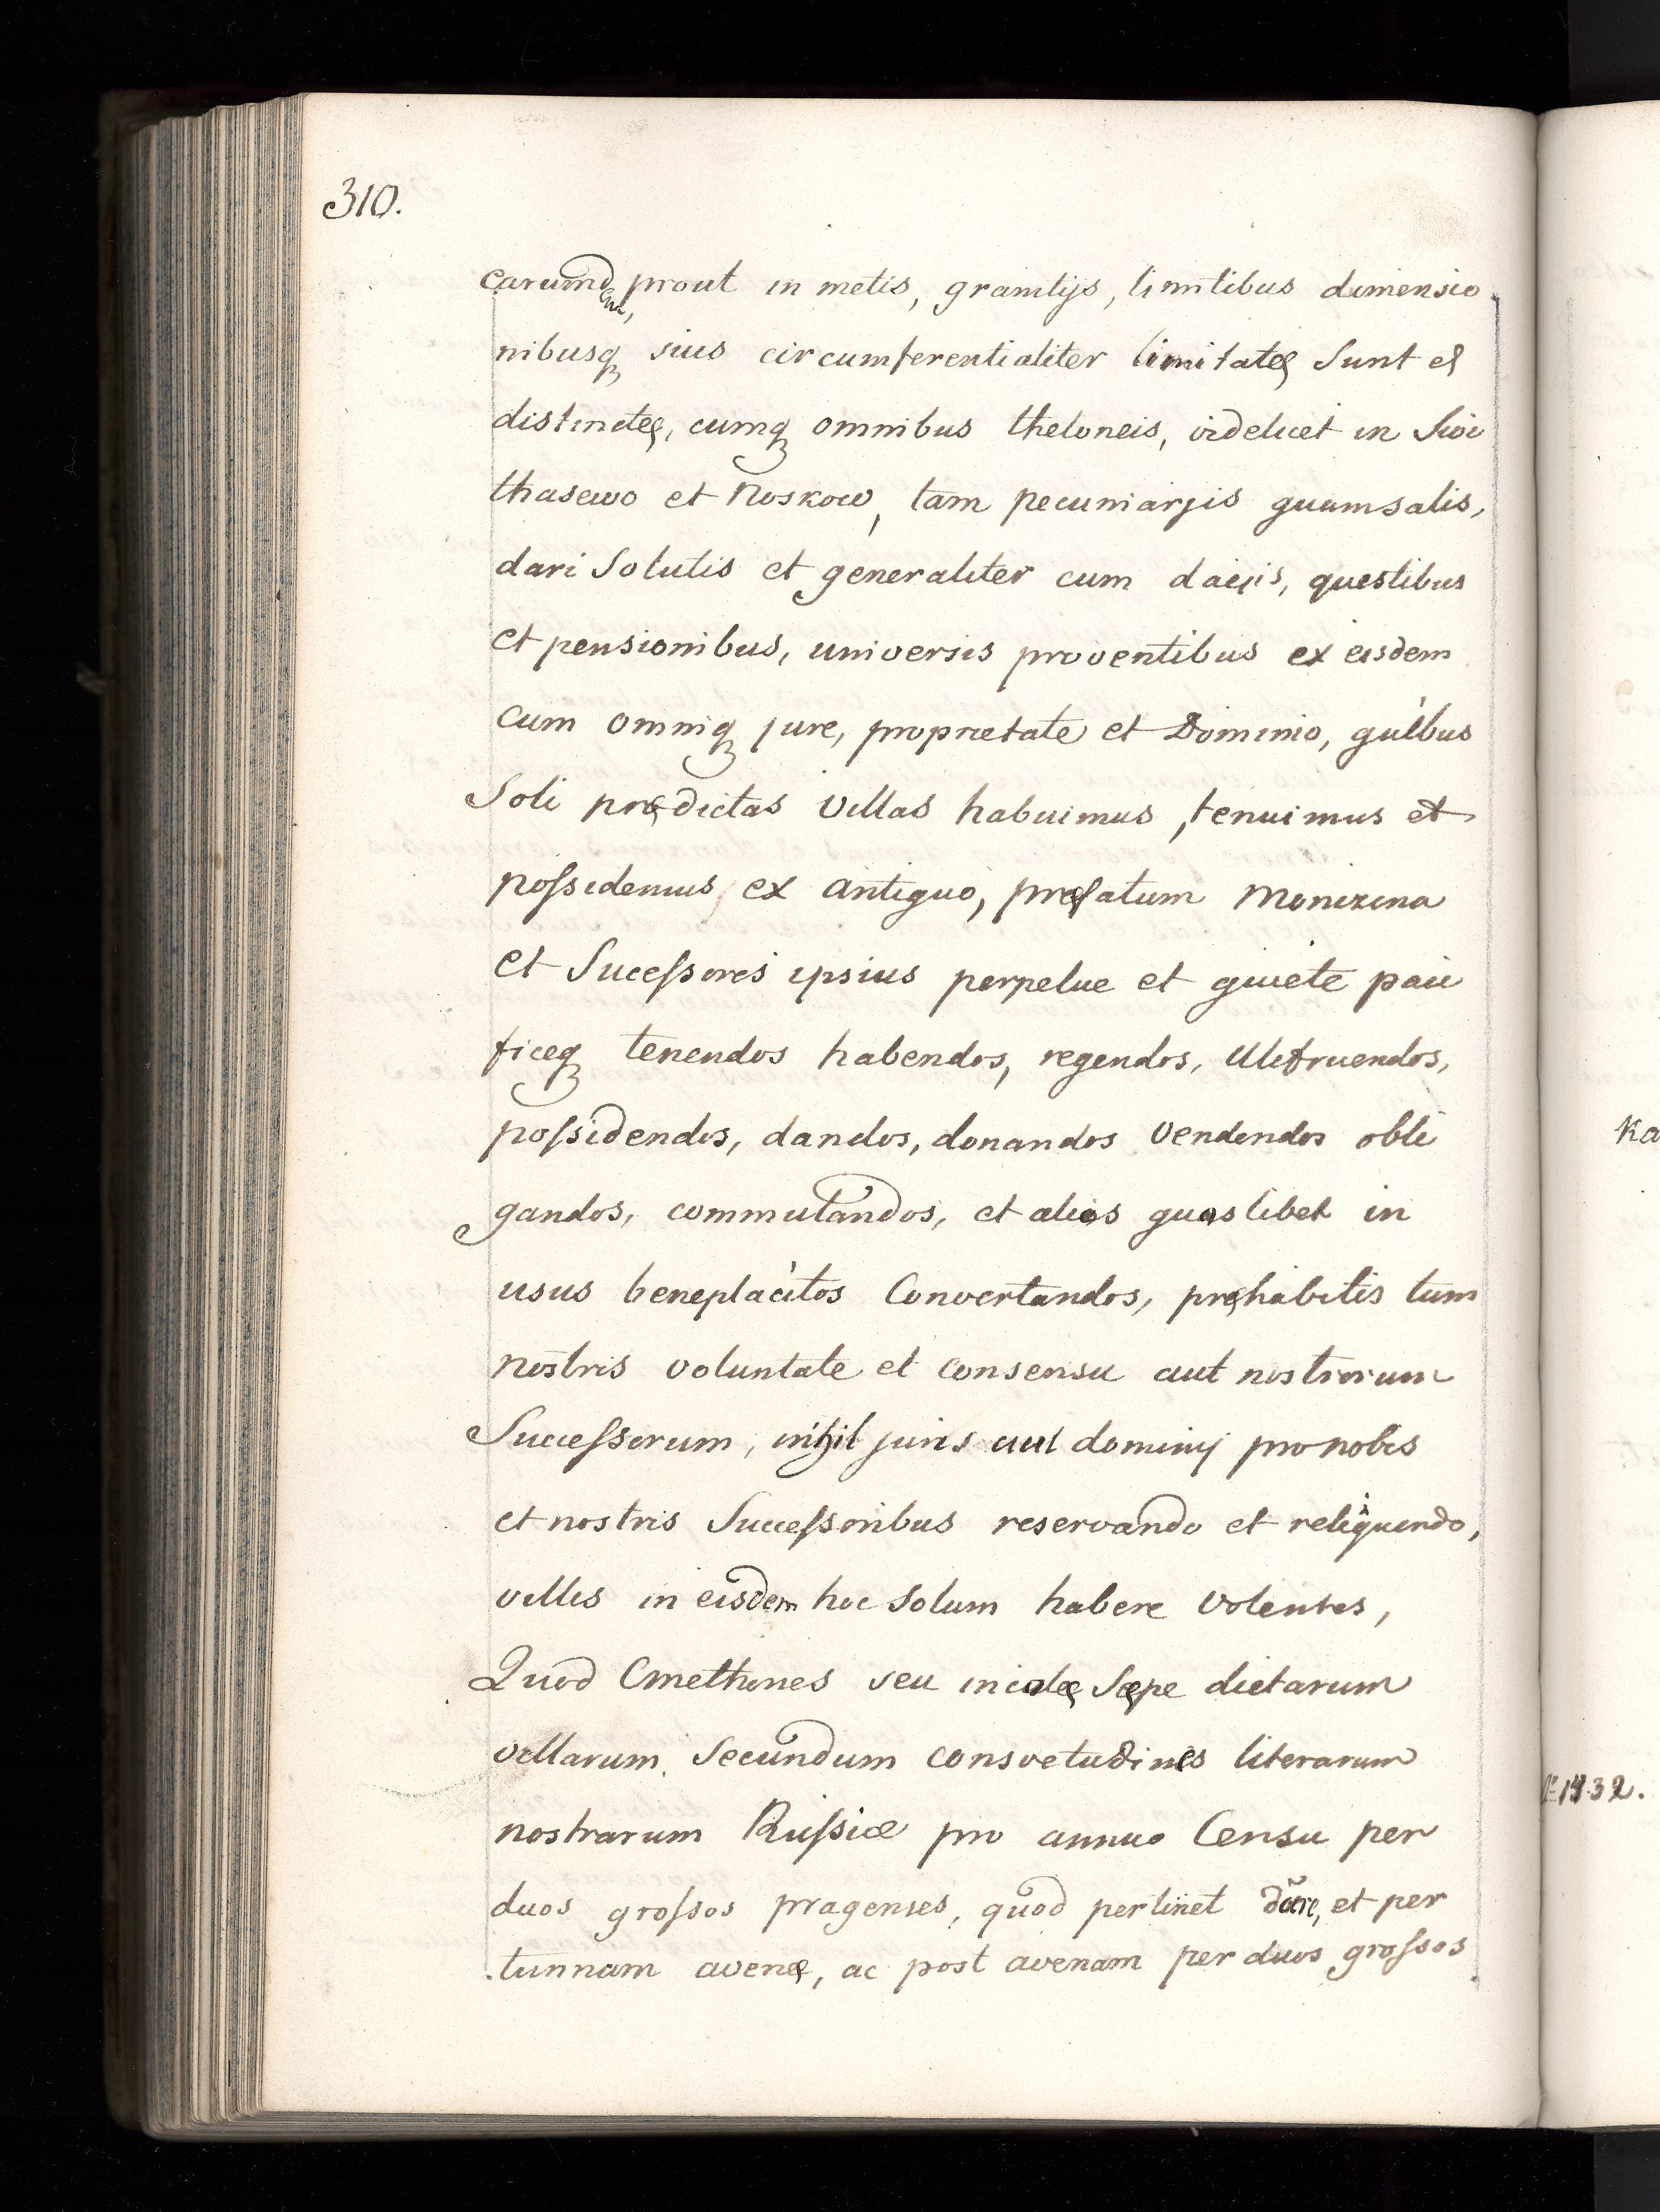 310.
earumdem, prout in metis, granitijs, limitibus dimensio
nibusq₃ suis circumferentialiter limitatę sunt et
distinctę, cumq₃ omnibus theloneis, videlicet in Swi
thasewo et Noskow, tam pecuniarjis quamsalis,
dari solutis et generaliter cum dacijs, questibus
et pensionibus, universis proventibus ex eisdem
cum omniq₃ jure, proprietate et Dominio, quibus
Soli prędictas villas habuimus, tenuimus et
possidemus ex antiquo, pręfatum Monizina
et Sucessores ipsius perpetue et quiete paci
ficeq₃ tenendos habendos, regendos, Utifruendos,
possidendos, dandos, donandos vendendos obli
gandos, commutandos, et alios quoslibet in
usus beneplacitos Convertandos, pręhabitis tum
nostris voluntate et consensu aut nostrorum
Successorum, nihil juris aut dominij pro nobis
et nostris Successoribus reservando et reliquendo,
villis in eisdem hoc solum habere volentes,
Quod Cmethones seu incolę sępe dictarum
villarum secundum consvetudines literarum
nostrarum Russiæ pro annuo Censu per
duos grossos pragenses, quod pertinet dare, et per
tunnam avenę, ac post avenam per duos grossos
Ka
1432.